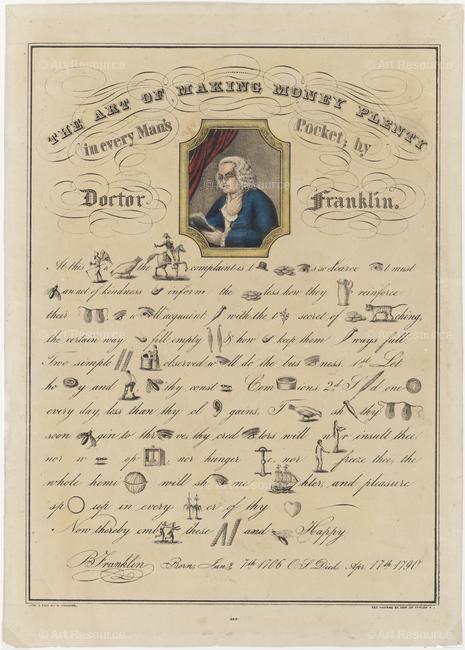 THE ART OF MAKING MONEY PLENTY
in every Man's Pocket; by
Doctor Franklin.
At this the complaint is t s so scarce t must
an act of kindness inform the less how they reinforce
their w acquaint with the t secret of ching,
the certain way fill empty & how keep them ways full.
Two simple observed w ll do the bus ness. 1st Let
ho y and thy const Com ions. 2d S d one
every day, less than thy cl gains, T sh thy
soon gin to thr ve, thy cred tors will n r insult thee,
nor w op , nor hunger te, nor freeze thee, the
whole hemi will sh ne hter, and pleasure
sp up in every er of thy
Now thereby em these and Happy
B Franklin Born, Jan.y 7th 1706 O S Died, Apr. 17th 1790
© Art Resource